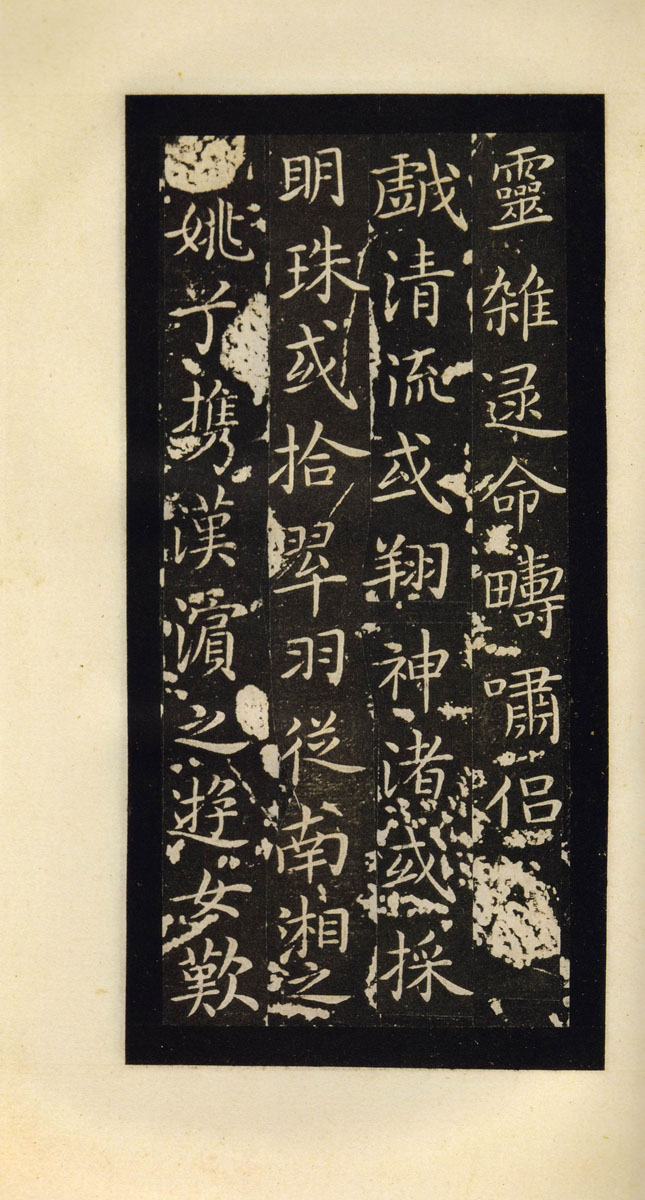 靈雜遝命疇嘯侶
戯清流或翔神渚或採
明珠或拾翠羽從南湘之
姚兮携漢濱之遊女歎